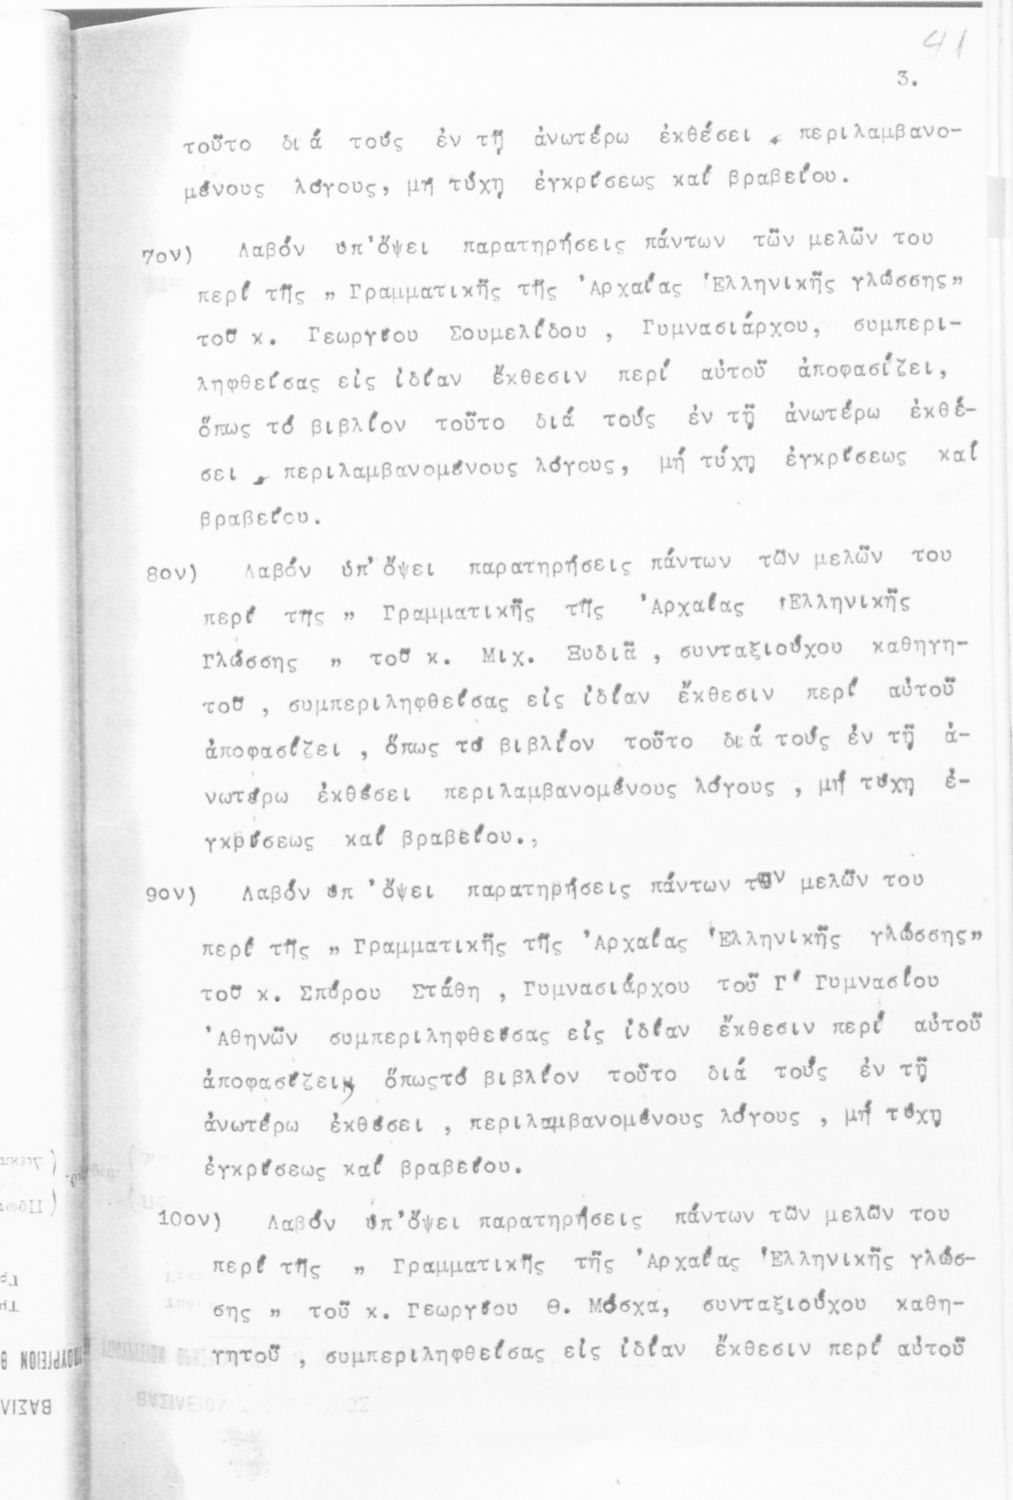 41
3.
τοῦτο διά τούς ἐν τῇ ἀνωτέρω ἐκθέσει , περιλαμβανο-
μένους λόγους, μή τύχῃ ἐγκρίσεως καί βραβείου.
7ον) Λαβόν ὑπ'ὄψει παρατηρήσεις πάντων τῶν μελῶν του
περί τῆς " Γραμματικῆς τῆς 'Αρχαίας 'Ελληνικῆς γλώσσης"
τοῦ κ. Γεωργίου Σουμελίδου , Γυμνασιάρχου, συμπερι-
ληφθείσας εἰς ἰδίαν ἔκθεσιν περί αὐτοῦ ἀποφασίζει,
ὅπως τό βιβλίον τοῦτο διά τούς ἐν τῇ ἀνωτέρω ἐκθέ-
σει , περιλαμβανομένους λόγους, μή τύχῃ ἐγκρίσεως καί
βραβείου.
8ον) Λαβόν ὑπ' ὄψει παρατηρήσεις πάντων τῶν μελῶν του
περί της " Γραμματικῆς τῆς 'Αρχαίας 'Ελληνικῆς
Γλώσσης " τοῦ κ. Μιχ. Ξυδιᾶ , συνταξιούχου καθηγη-
τοῦ , συμπεριληφθείσας εἰς ἰδίαν ἔκθεσιν περί αὐτοῦ
ἀποφασίζει , ὅπως τό βιβλίον τοῦτο διά τούς ἐν τῇ ἀ-
νωτέρω ἐκθέσει περιλαμβανομένους λόγους , μή τύχῃ ἐ-
γκρίσεως καί βραβείου.,
9ον) Λαβόν ὑπ 'ὄψει παρατηρήσεις πάντων τῶν μελῶν του
περί τῆς " Γραμματικῆς τῆς 'Αρχαίας 'Ελληνικῆς γλώσσης"
τοῦ κ. Σπύρου Στάθη , Γυμνασιάρχου τοῦ Γ' Γυμνασίου
'Αθηνῶν συμπεριληφθείσας εἰς ἰδίαν ἔκθεσιν περί αὐτοῦ
ἀποφασίζει, ὅπωςτό βιβλίον τοῦτο διά τούς ἐν τῇ
ἀνωτέρω ἐκθέσει , περιλαμβανομένους λόγους , μή τύχῃ
ἐγκρίσεως καί βραβείου.
10ον) Λαβόν ὑπ'ὄψει παρατηρήσεις πάντων τῶν μελῶν του
περί τῆς " Γραμματικῆς τῆς 'Αρχαίας 'Ελληνικῆς γλώσ-
σης " τοῦ κ. Γεωργίου Θ. Μόσχα, συνταξιούχου καθη-
γητοῦ , συμπεριληφθείσας εἰς ἰδίαν ἔκθεσιν περί αὐτοῦ